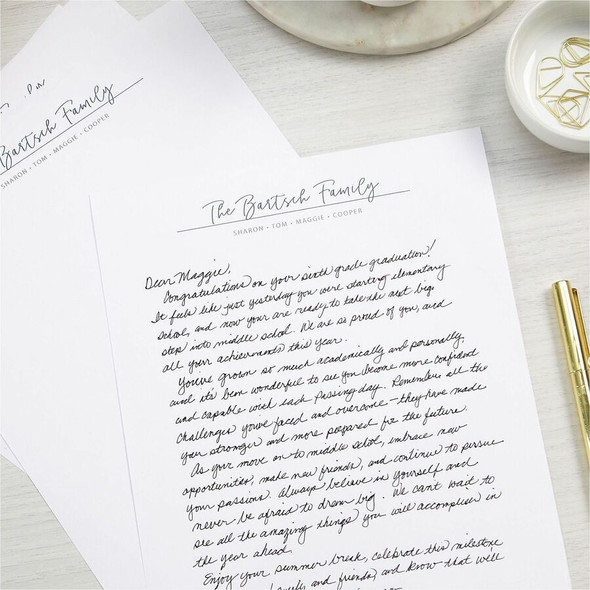 Bartsch Family
SHARON • TOM • MAGGIE • COOPER
The Bartsch Family
SHARON • TOM • MAGGIE • COOPER
Dear Maggie,
Congratulations on your sixth grade graduation!
It feels like just yesterday you were starting elementary
school, and now your are ready to take the next big
step into middle school. We are so proud of you, and
all your achievements this year.
You've grown so much academically and personally,
and it's been wonderful to see you become more confident
and capable with each passing day. Remember all the
challenges you've faced and overcome—they have made
you stronger and more prepared for the future.
As your move on to middle school, embrace new
opportunities, make new friends, and continue to pursue
your passions. Always believe in yourself and
never be afraid to dream big. We can't wait to
see all the amazing things you will accomplish in
the year ahead.
Enjoy your summer break, celebrate this milestone
and friends, and know that we'll